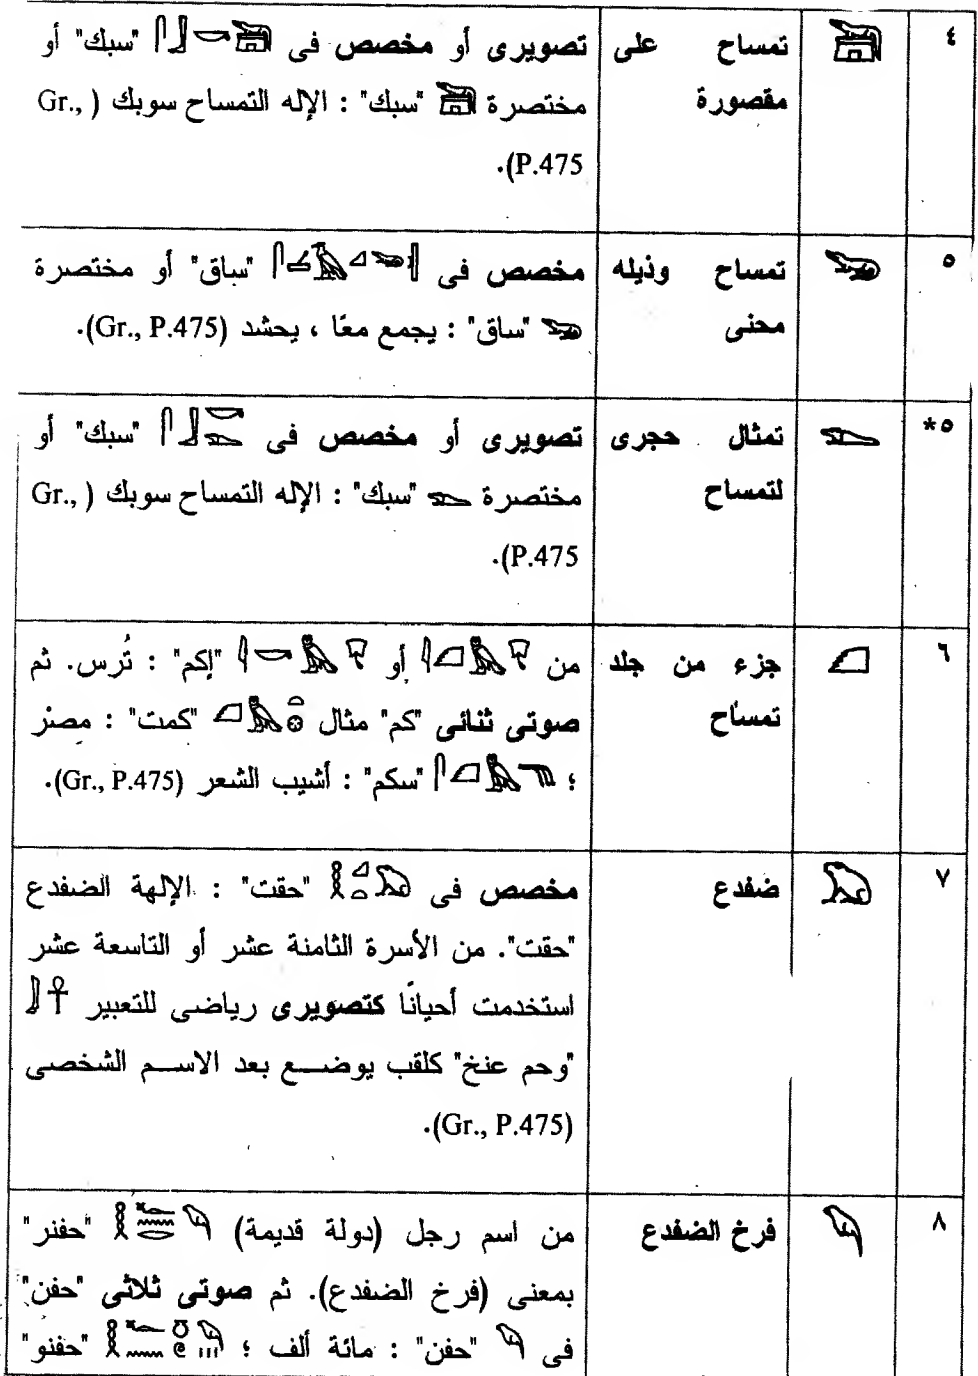 ٤ تمساح على تصويرى أو مخصص فى 𓆋𓎡𓃀𓋴 "سبك" أو
مقصورة مختصرة 𓆋 "سبك" : الإله التمساح سوبك ( Gr.,
P.475).
٥ تمساح وذيله مخصص فى "ساق" أو مختصرة
محنى 𓆌 "ساق" : يجمع معًا ، يحشد (Gr., P.475).
٥* تمثال حجرى تصويرى أو مخصص فى "سبك" أو
لتمساح مختصرة "سبك" : الإله التمساح سوبك ( Gr.,
P.475).
٦ 𓆎 جزء من جلد من أو "إكم" : تُرس. ثم
تمساح صوتى ثنائى "كم" مثال "كمت" : مصر
؛ "سكم" : أشيب الشعر (Gr., P.475).
٧ 𓆏 ضفدع مخصص فى "حقت" : الإلهة الضفدع
"حقت". من الأسرة الثامنة عشر أو التاسعة عشر
استخدمت أحيانًا كتصويرى رياضى للتعبير
"وحم عنخ" كلقب يوضع بعد الاسم الشخصى
(Gr., P.475).
٨ 𓆐 فرخ الضفدع من اسم رجل (دولة قديمة) "حفنر"
بمعنى (فرخ الضفدع). ثم صوتى ثلاثى "حفن"
فى 𓆐 "حفن" : مائة ألف ؛ "حفنو"